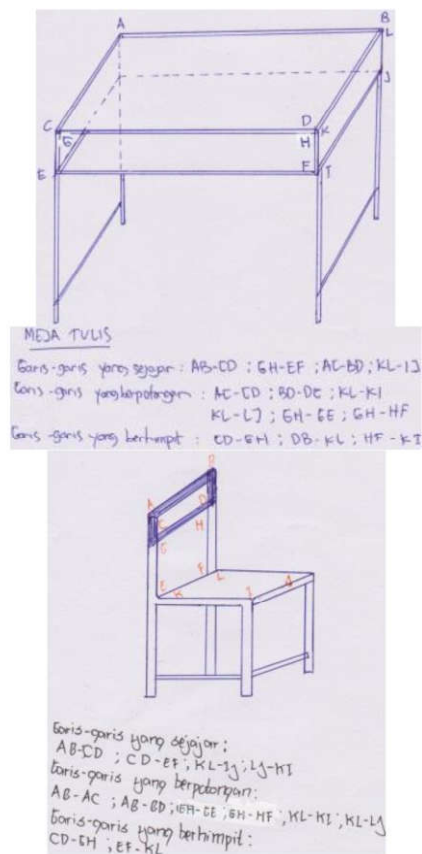 A
B
L
J
C
G
D
K
H
E
F
I
MEJA TULIS
Garis-garis yang sejajar : AB-CD ; GH-EF ; AC-BD ; KL-IJ
Garis-garis yang berpotongan : AC-CD ; BD-DC ; KL-KI
KL-LJ ; GH-GE ; GH-HF
Garis-garis yang berhimpit : CD-GH ; DB-KL ; HF-KI
B
A
C
D
G
H
E
F
K
L
I
J
Garis-garis yang sejajar :
AB-CD ; CD-EF ; KL-IJ ; LJ-KI
Garis-garis yang berpotongan :
AB-AC ; AB-BD ; GH-GE ; GH-HF ; KL-KI ; KL-LJ
Garis-garis yang berhimpit :
CD-GH ; EF-KL